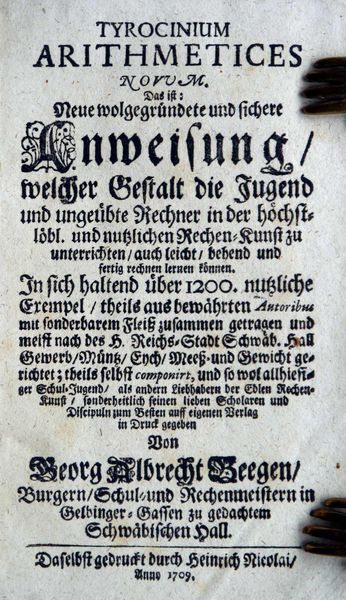 TYROCINIUM
ARITHMETICES
NOVUM.
Das ist:
Neue wolgegründete und sichere
Anweisung/
welcher Gestalt die Jugend
und ungeübte Rechner in der höchst-
löbl. und nutzlichen Rechen-Kunst zu
unterrichten/auch leicht/behend und
fertig rechnen lernen können.
In sich haltend über 1200. nutzliche
Exempel/theils aus bewährten Autoribus
mit sonderbarem Fleiß zusammen getragen und
meist nach des H. Reichs-Stadt Schwäb. Hall
Gewerb/Müntz/Eych/Meeß-und Gewicht ge-
richtet; theils selbst componirt, und so wol allhiesi-
ger Schul-Jugend/als andern Liebhabern der Edlen Rechen-
Kunst/sonderheitlich seinen lieben Scholaren und
Discipuln zum Besten auff eigenen Verlag
in Druck gegeben
Von
Georg Albrecht Geegen/
Burgern/Schul-und Rechenmeistern in
Gelbinger-Gassen zu gedachtem
Schwäbischen Hall.
Daselbst gedruckt durch Heinrich Nicolai/
Anno 1709.